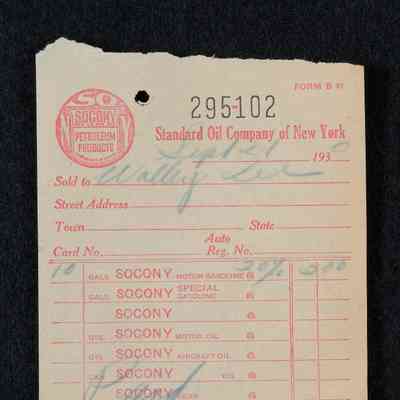 FORM B 41
SO
SOCONY
PETROLEUM
PRODUCTS
295-102
Standard Oil Company of New York
Sept 21 193
Sold to
Street Address
Town State
Card No. Auto Reg. No.
10 GALS SOCONY MOTOR GASOLINE @ 20½ 2.00
GALS SOCONY SPECIAL GASOLINE @
SOCONY @
QTS SOCONY MOTOR OIL @
QTS SOCONY AIRCRAFT OIL @
CAN SOCONY OIL @
SOCONY @
Paid